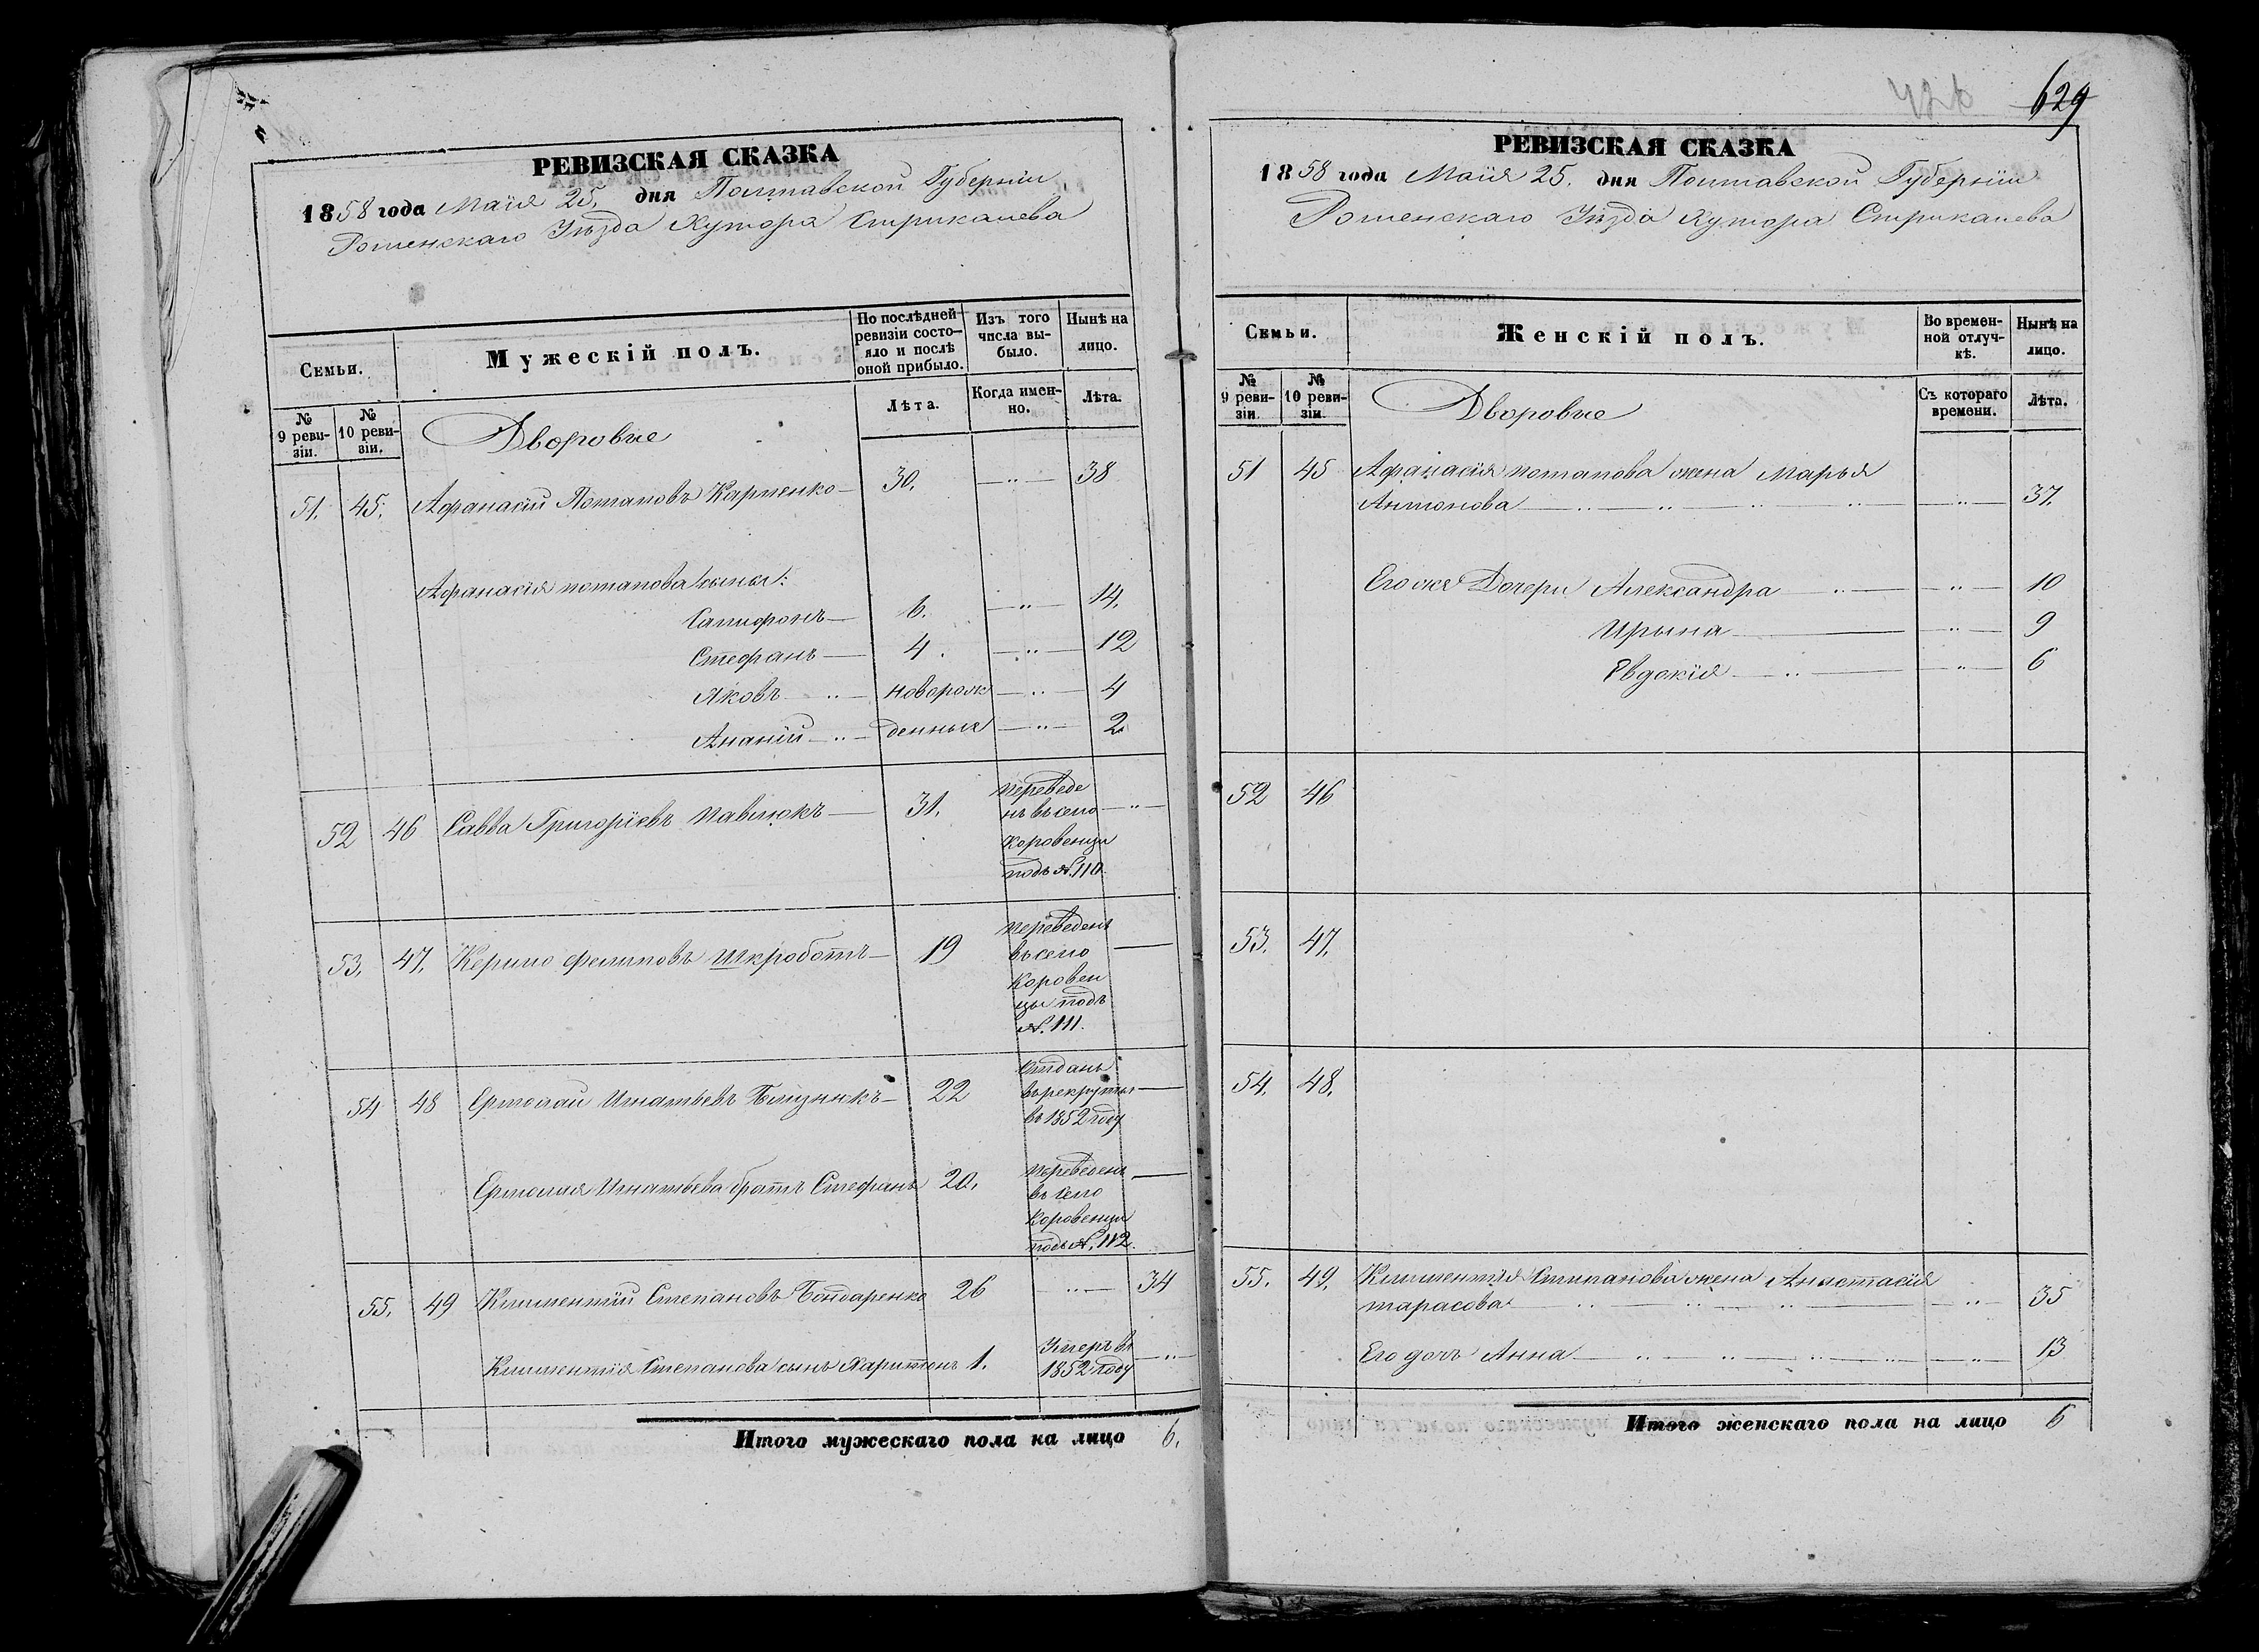 629
РЕВИЗСКАЯ СКАЗКА
1858 года Маія 25. дня Полтавской Губерніи
Роменскаго Уѣзда Хутора Стрикачева
Семьи.
Мужескій полъ.
По послѣдней ревизіи состояло и послѣ оной прибыло.
Изъ того числа выбыло.
Нынѣ на лицо.
№ 9 ревизіи.
№ 10 ревизіи.
Лѣта.
Когда именно.
Лѣта.
Дворовые
51. 45. Афанасій Потаповъ Карпенко 30. — " — 38
Афанасія потапова сыны:
6. — " — 14.
Стефанъ 4. — " — 12
Яковъ — " — новорож — " — 4
Ананій — " — денныя — " — 2
52 46 Савва Григоріевъ Павлюкъ 31. — " —
переведе
нъ въ село
Коровенци
подъ N. 110.
53. 47. Филиповъ Шкроботъ 19 —
переведенъ
въ село
Коровен
цы подъ
N. 111.
54 48 Ермолай Игнатьевъ 22 —
отданъ
въ рекруты
въ 1852 году
Ермолая Игнатьева братъ Стефанъ 20. —
переведенъ
въ село
Коровенци
подъ N. 112.
55. 49 Климентій Степановъ Бондаренко 26 — " — 34
Климентія Степанова сынъ Харитонъ 1. — " —
Умеръ въ
1852 году
Итого мужескаго пола на лицо 6.
РЕВИЗСКАЯ СКАЗКА
1858 года Маія 25. дня Полтавской Губерніи
Роменскаго Уѣзда Хутора Стрикачева
Семьи.
Женскій полъ.
Во временной отлучкѣ.
Нынѣ на лицо.
№ 9 ревизіи.
№ 10 ревизіи.
Съ котораго времени.
Лѣта.
Дворовые
51 45 Афанасія потапова жена Марья
Антонова — " — 37.
Его же Дочери Александра — " — 10
Ирына — " — 9
Евдокія — " — 6
52 46
53. 47.
54. 48.
55. 49. Климентія Степанова жена Анастасія
тарасова — " — 35
Его дочь Анна — " — 13
Итого женскаго пола на лицо 6